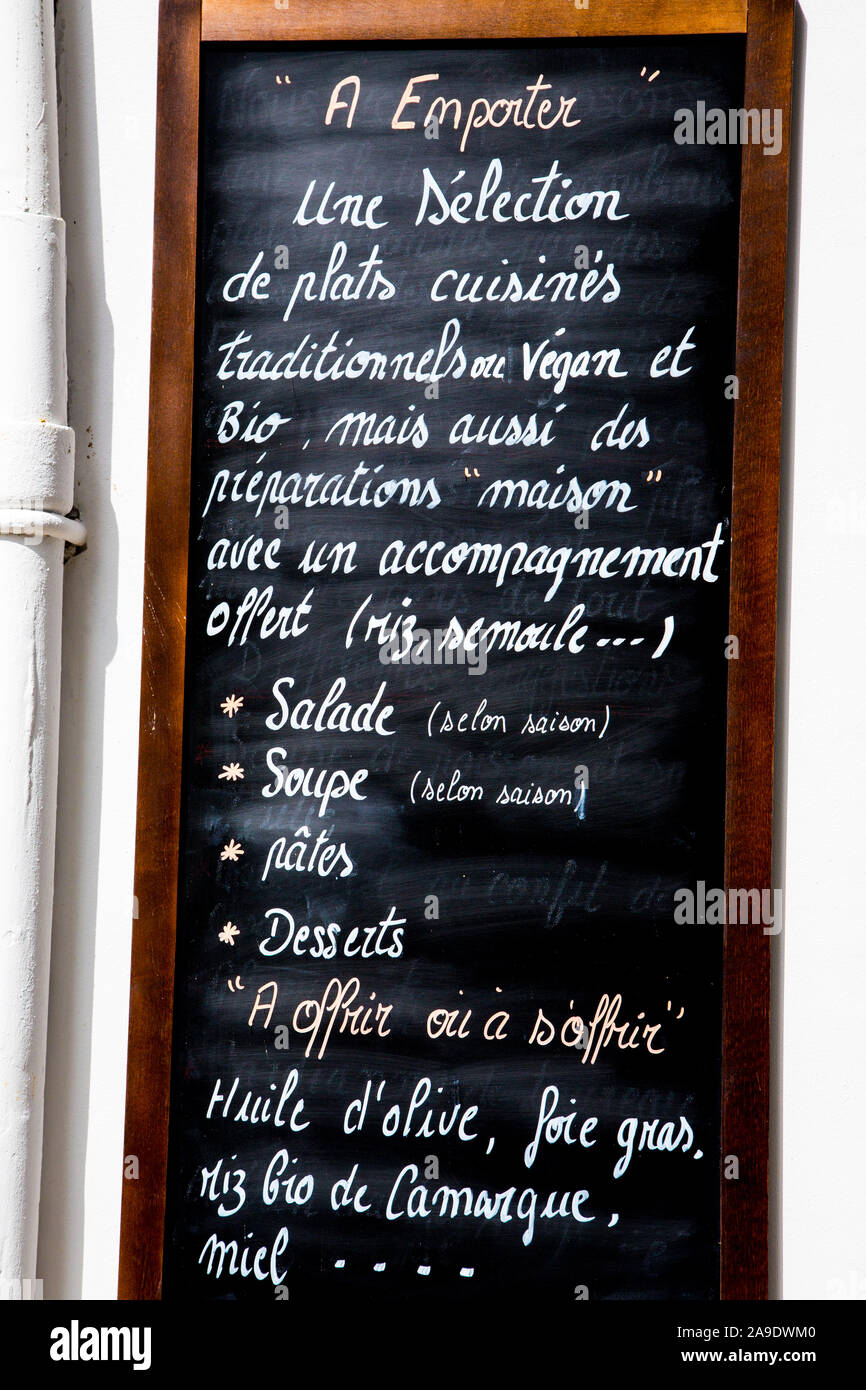 " A Emporter "
Une Sélection
de plats cuisinés
traditionnels ou Végan et
Bio, mais aussi des
préparations "maison"
avec un accompagnement
offert (riz, semoule...)
* Salade (selon saison)
* Soupe (selon saison)
* pâtes
* Desserts
"A offrir ou à s'offrir"
Huile d'olive, foie gras.
riz bio de Camargue,
miel ....
alamy
Image ID: 2A9DWM0
www.alamy.com